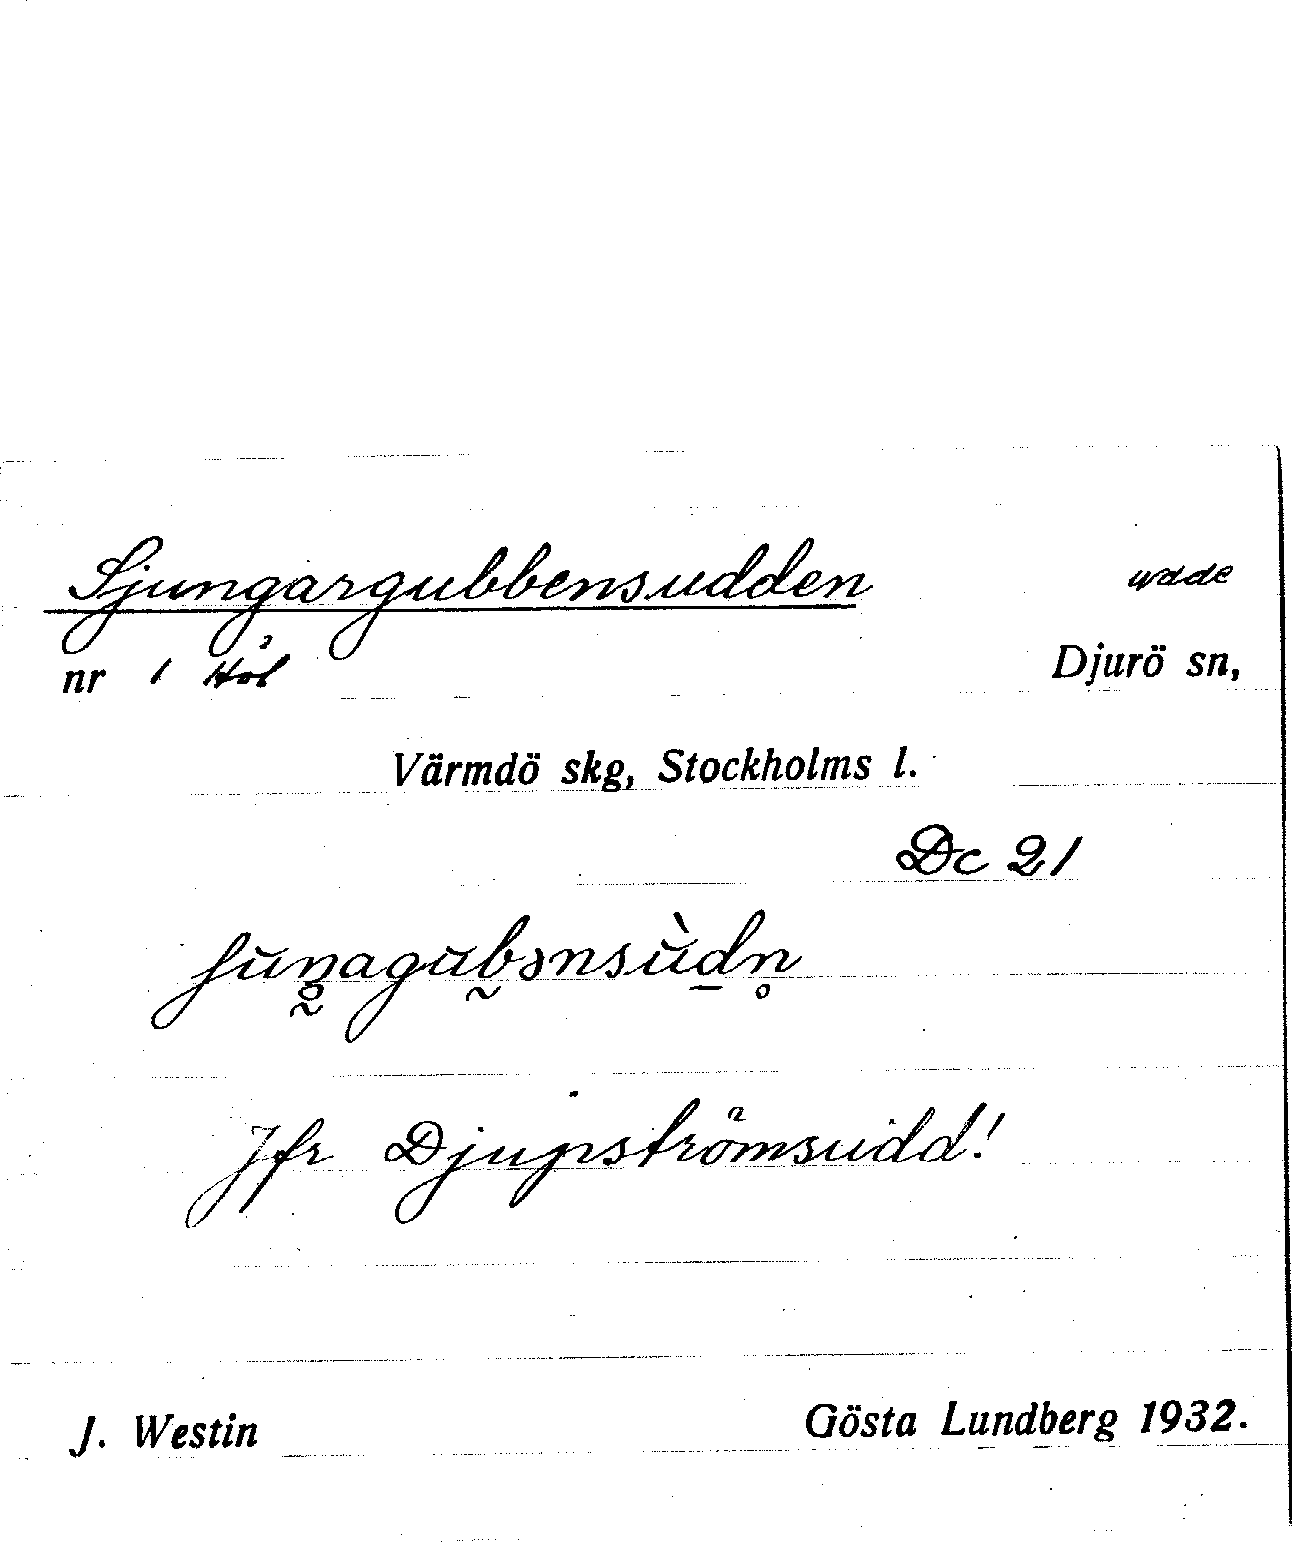 Sjungargubbensudden udde
nr 1 Hol Djurö sn,
Värmdö skg, Stockholms l.
Dc 21
Jfr Djupströmsudd!
J. Westin Gösta Lundberg 1932.